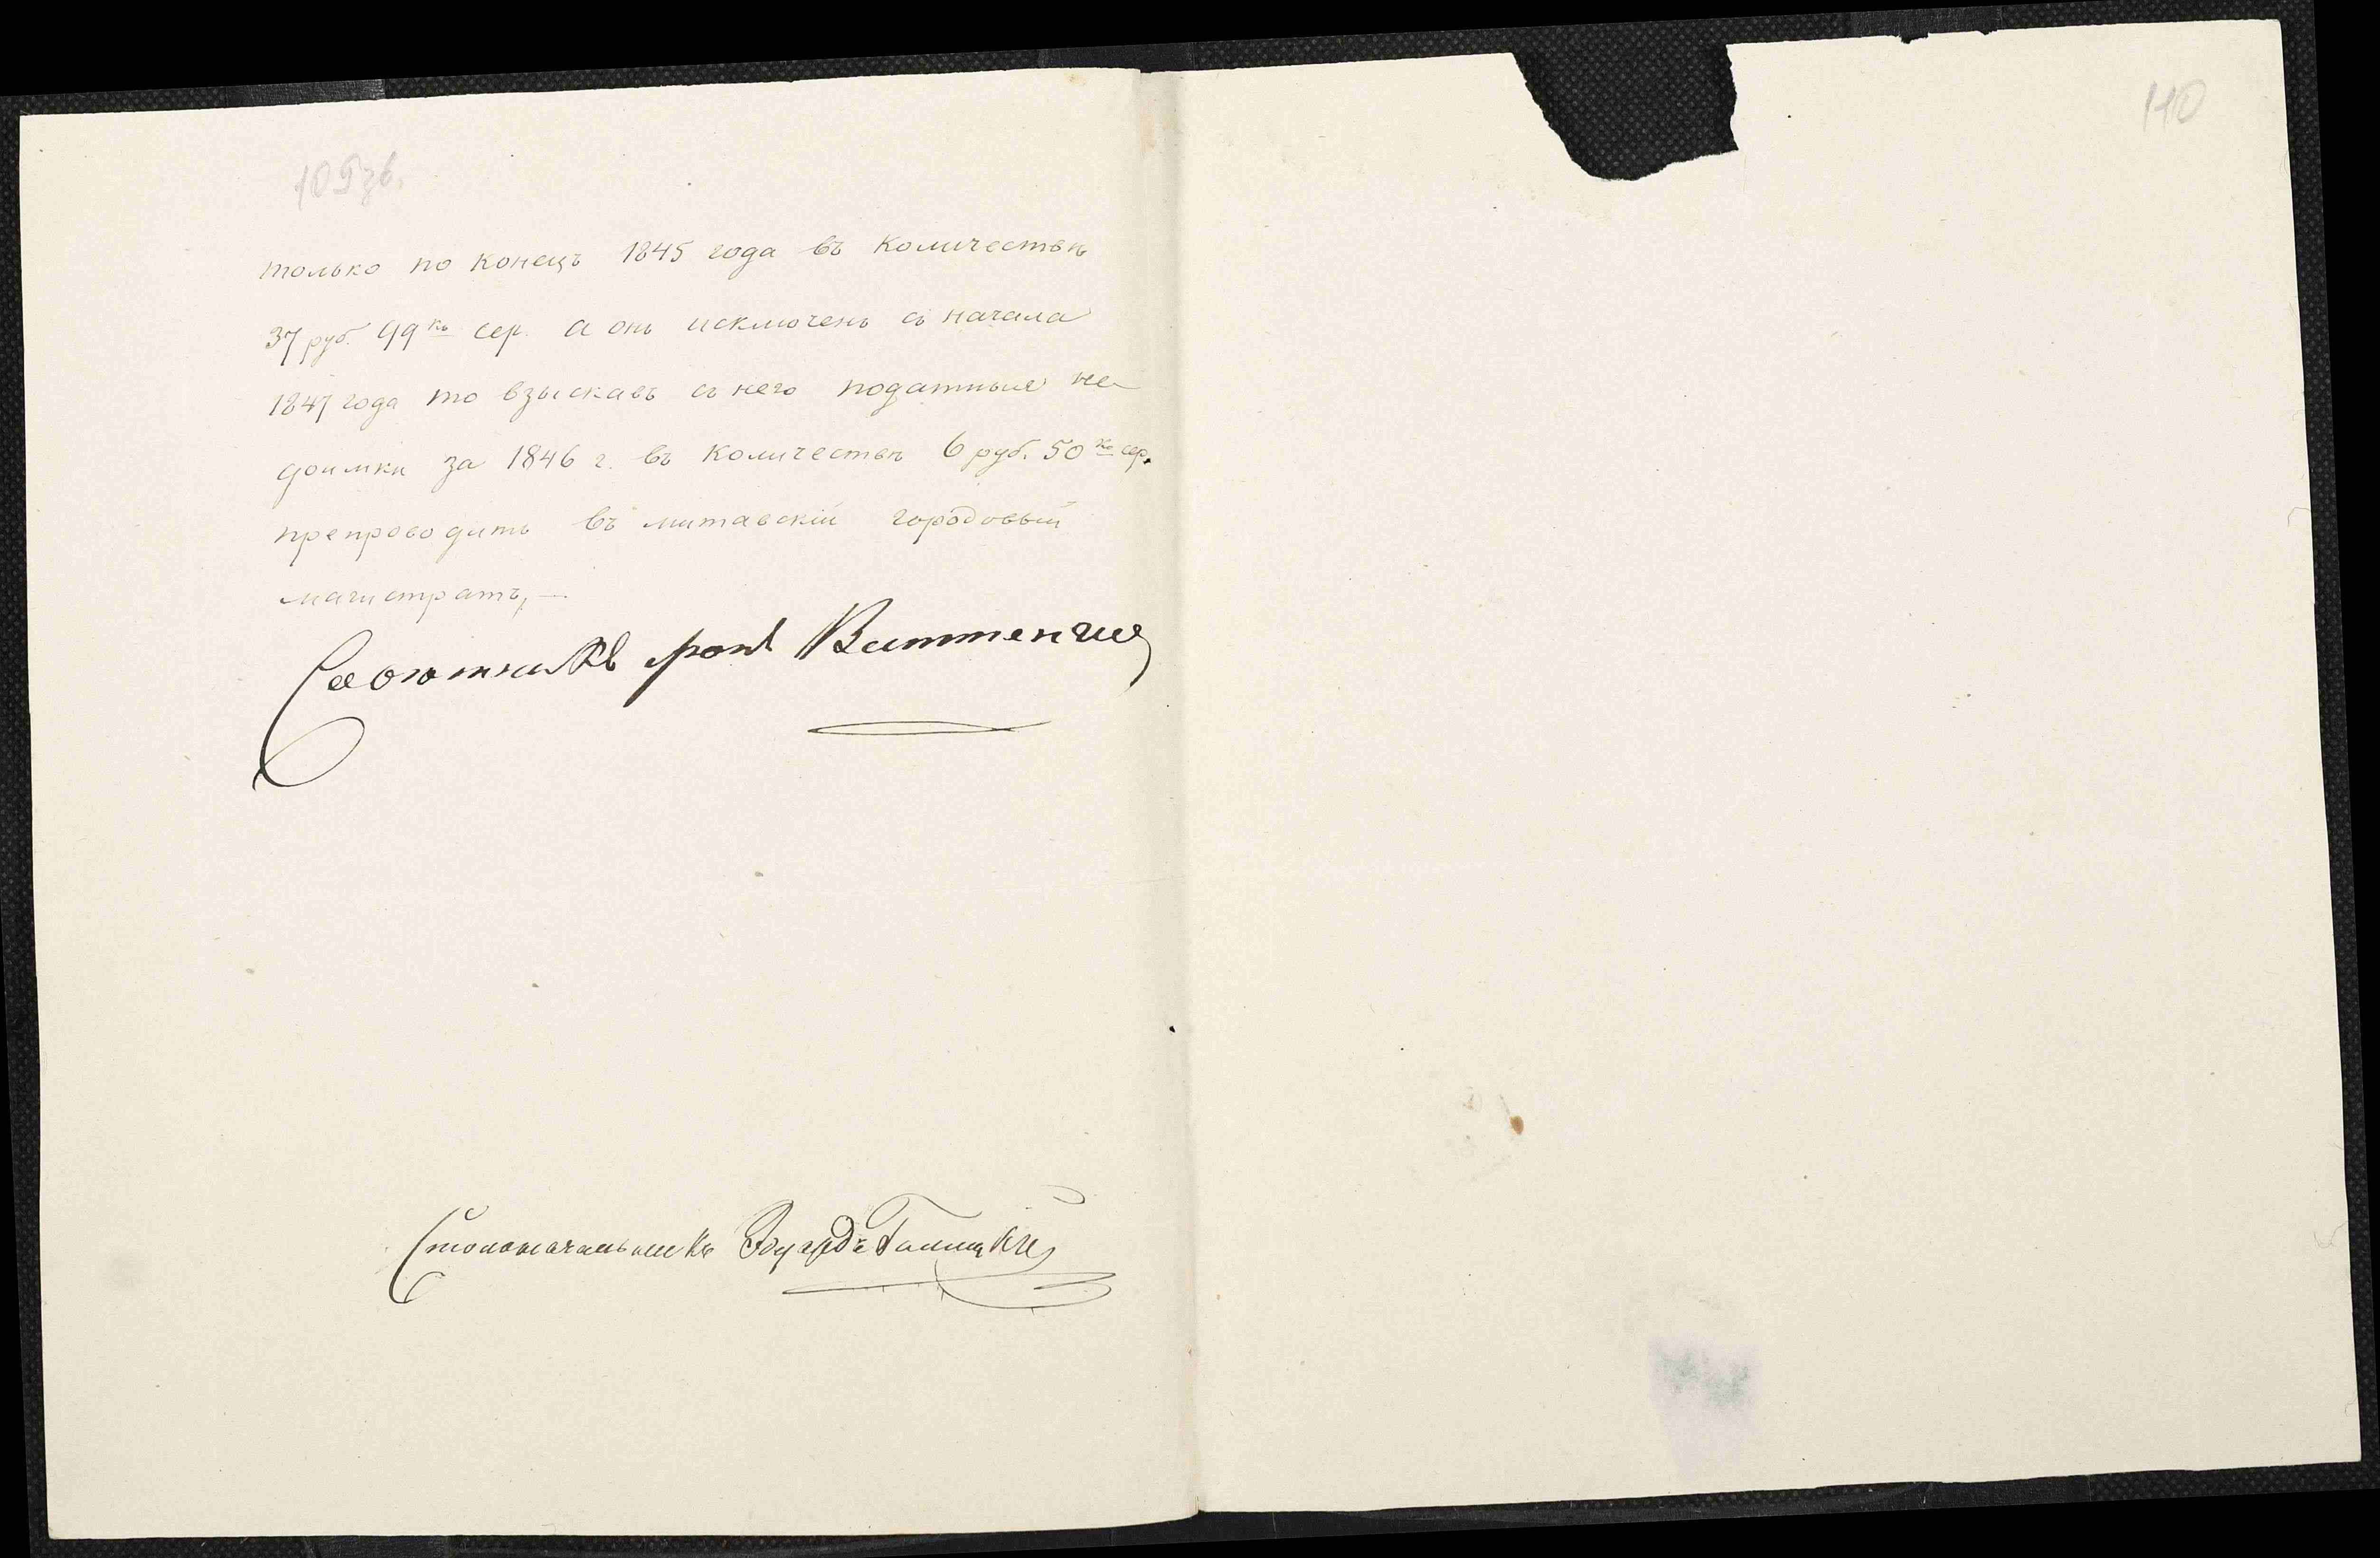 109зв.
только по конецъ 1845 года въ количествѣ
37 руб. 99 к. сер. а онъ исключенъ съ начала
1847 года то взыскавъ съ него податныя не-
доимки за 1846 г. въ количествѣ 6 руб. 50 к. сер.
препроводить въ митавскій городовый
магистратъ,—
Совѣтникъ фонъ Виттенгие
Столоначальникъ Эдуардъ
110